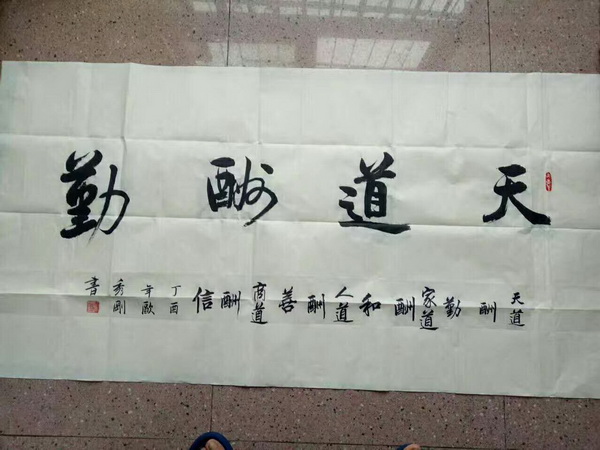 天道酬勤
天道酬勤家道酬和人道酬善商道酬信
丁酉年欧秀刚书